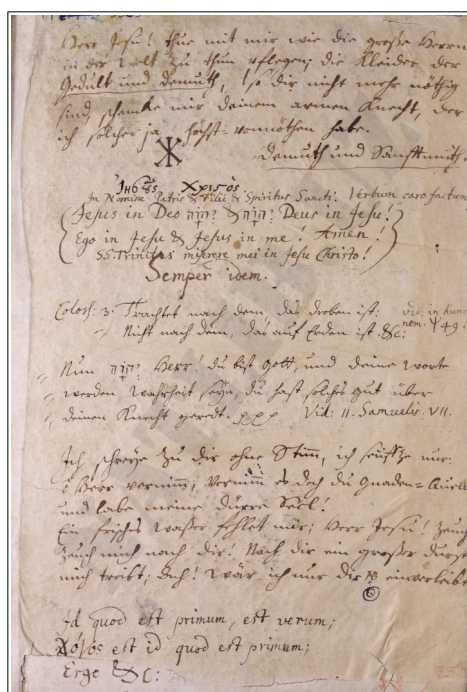 Herr Jesu! thue mit mir wie die große Herren
in der Welt zu thun pflegen; die Kleider der
Gedult und demuth, so dir nicht mehr nöthig
sind, schencke mir deinem armen Knecht, der
ich solcher ja höchst vonnöthen habe.
Demuth und Sanfftmuth.
In Nomine Patris & Filii & Spiritus Sancti. Verbum caro factum
Jesus in Deo יהוה & יהוה Deus in Jesu!
Ego in Jesu & Jesus in me! Amen!
SS. Trinitas miserere mei in Jesu Christo!
Semper idem.
Coloss: 3. Trachtet nach dem, das droben ist;
Nicht nach dem, das auf Erden ist. &c:
vid: in hunc
Ψ 49.
Nun יהוה Herr! du bist Gott, und deine worte
werden Wahrheit seyn, du hast solches gut über
deinen Knecht geredt. Vid: II. Samuelis. VII.
Ich schreye zu dir ohne Stimm, ich seufftze nur.
ô Herr vernimm, vernimm es doch du Gnaden-Quell
und labe meine dürre Seel!
Ein frisches Waßer fehlet mir; Herr Jesu! Zeuch
Zeuch mich nach dir! Nach dir ein großer durst
mich treibt; Ach! wär ich nur dir einverleibt
Id quod est primum, est verum;
λόγος est id quod est primum;
Ergo &c: